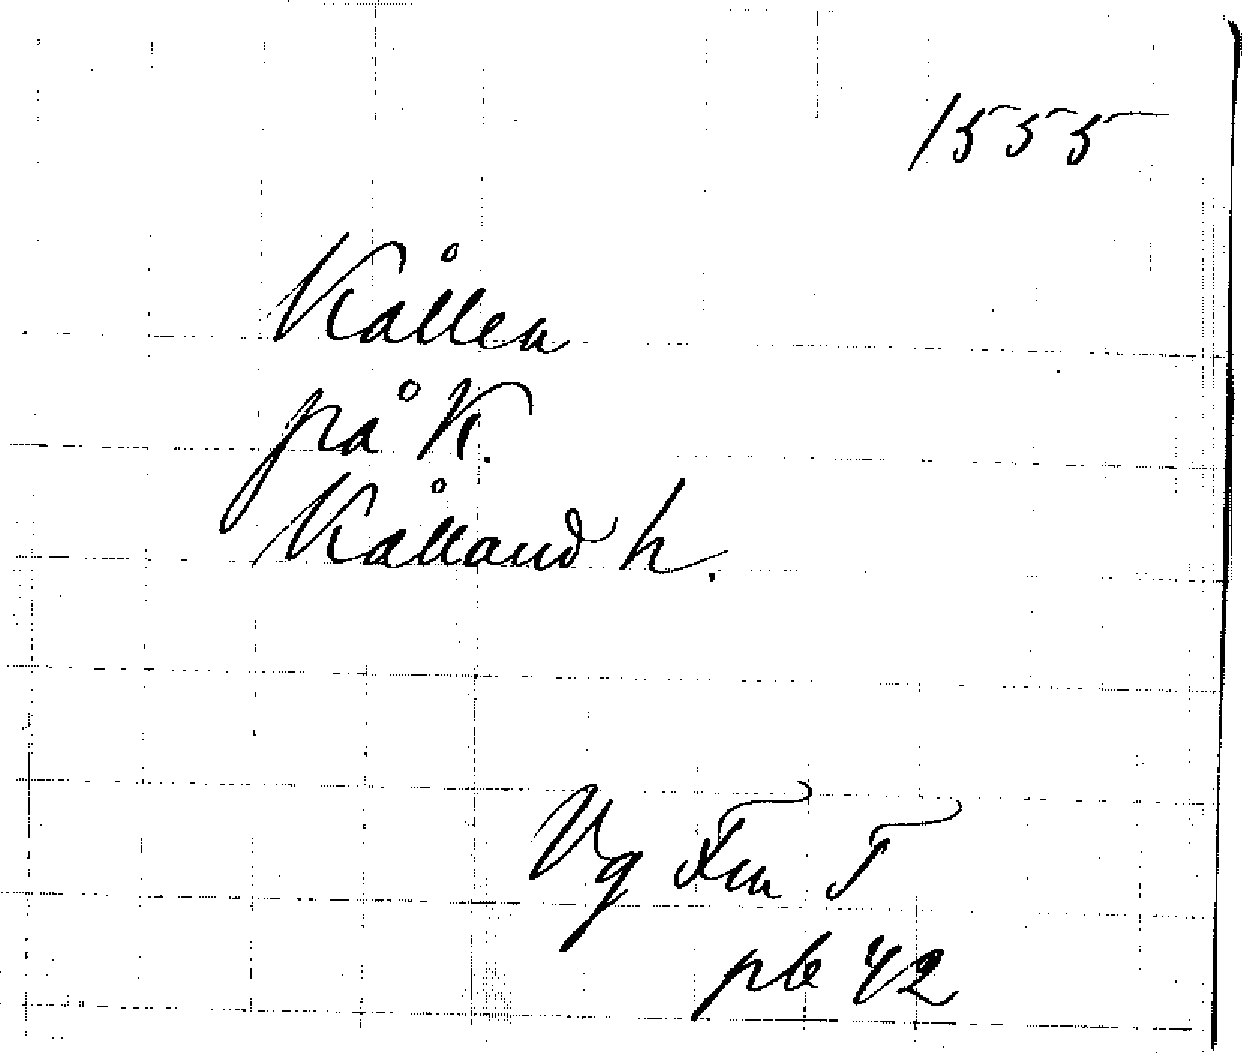 1555
Kållen
på K.
Kålland h.
Vg Fru T
pb 42